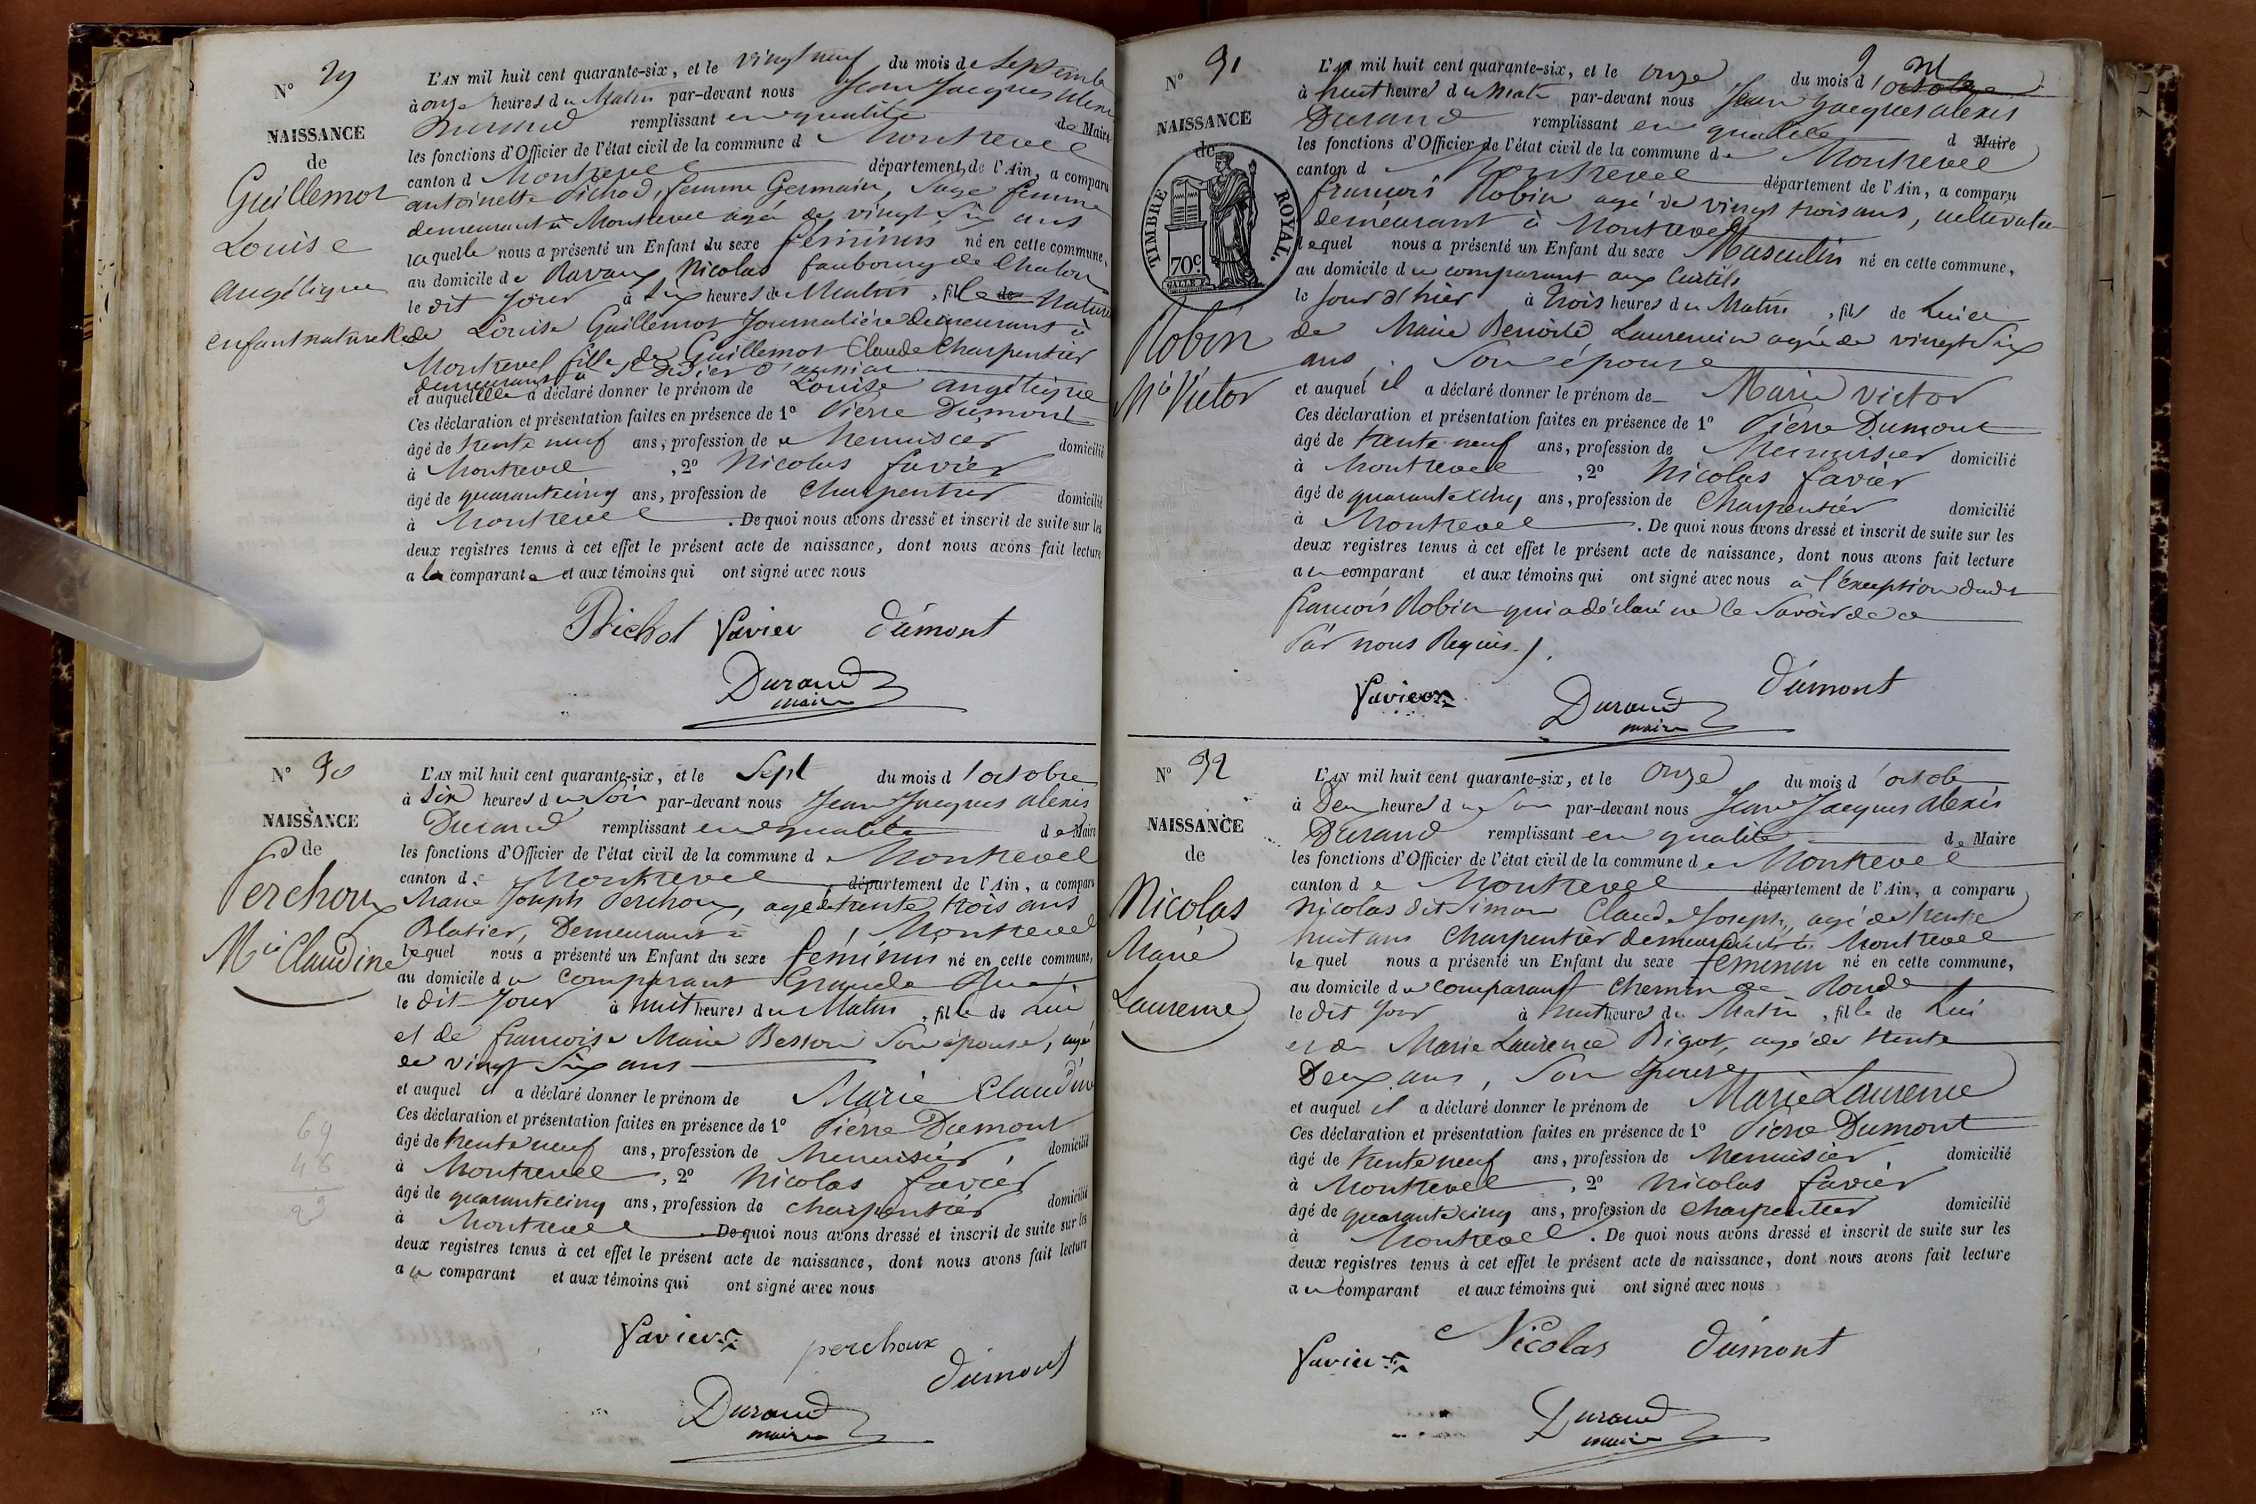 N° 29
NAISSANCE
de
Guillemot
Louise
angélique
enfant naturelle
L'AN mil huit cent quarante-six, et le vingt neuf du mois de Septembre
à onze heures du Matin par-devant nous Jean Jacques alexis
Durand remplissant en qualité de Maire
les fonctions d'Officier de l'état civil de la commune d Montrevel
canton d Montrevel département de l'Ain, a comparu
antoinette Pichod, femme Germain, Sage femme
demeurant à Montrevel agée de vingt Six ans
laquelle nous a présenté un Enfant du sexe féminin né en cette commune,
au domicile de Ravaux Nicolas faubourg de Chalon
le dit Jour à Six heures du Matin, fille de Nature
de Louise Guillemot Journalière demeurant à
Montrevel fille de Guillemot Claude Charpentier
demeurant à St Didier d'aussiat
et auquel elle a déclaré donner le prénom de Louise angélique
Ces déclaration et présentation faites en présence de 1° Pierre Dumont
âgé de trente neuf ans, profession de Menuisier domicilié
à Montrevel, 2° Nicolas favier
âgé de quarante cinq ans, profession de Charpentier domicilié
à Montrevel. De quoi nous avons dressé et inscrit de suite sur les
deux registres tenus à cet effet le présent acte de naissance, dont nous avons fait lecture
a la comparante et aux témoins qui ont signé avec nous
Pichot favier dumont
Durand
maire
N° 30
NAISSANCE
de
Perchoux
Mie Claudine
L'AN mil huit cent quarante-six, et le Sept du mois d'octobre
à Six heures du Soir par-devant nous Jean Jacques alexis
Durand remplissant en qualité de Maire
les fonctions d'Officier de l'état civil de la commune d Montrevel
canton de Montrevel département de l'Ain, a comparu
Marie Joseph Perchoux, agé de trente trois ans
Blatier, Demeurant à Montrevel
lequel nous a présenté un Enfant du sexe féminin né en cette commune,
au domicile du comparant Grande Rue
le dit Jour à huit heures du Matin, fille de Lui
et de francoise Marie Besson Son épouse, agé
de vingt Six ans
et auquel il a déclaré donner le prénom de Marie Claudine
Ces déclaration et présentation faites en présence de 1° Pierre Dumont
âgé de trente neuf ans, profession de Menuisier, domicilié
à Montrevel, 2° Nicolas favier
âgé de quarante cinq ans, profession de charpentier domicilié
à Montrevel De quoi nous avons dressé et inscrit de suite sur les
deux registres tenus à cet effet le présent acte de naissance, dont nous avons fait lecture
au comparant et aux témoins qui ont signé avec nous
69
46
23
favier perchoux
dumont
Durand
maire
N° 31
NAISSANCE
de
TIMBRE ROYAL.
70c
Robin
Mie Victor
L'AN mil huit cent quarante-six, et le onze du mois d'octobre
à huit heures du Matin par-devant nous Jean Jacques alexis
Durand remplissant en qualité d Maire
les fonctions d'Officier de l'état civil de la commune de Montrevel
canton d Montrevel département de l'Ain, a comparu
francois Robin agé de vingt trois ans, cultivateur
demeurant à Montrevel
lequel nous a présenté un Enfant du sexe Masculin né en cette commune,
au domicile du comparant aux Curtils
le Jour d'hier à trois heures du Matin, fils de Lui et
de Marie Benoite Laurencin agée de vingt Six
ans, Son épouse
et auquel il a déclaré donner le prénom de Marie victor
Ces déclaration et présentation faites en présence de 1° Pierre Dumont
âgé de trente neuf ans, profession de Menuisier domicilié
à Montrevel, 2° Nicolas favier
âgé de quarante cinq ans, profession de Charpentier domicilié
à Montrevel. De quoi nous avons dressé et inscrit de suite sur les
deux registres tenus à cet effet le présent acte de naissance, dont nous avons fait lecture
au comparant et aux témoins qui ont signé avec nous à l'exception dudit
francois Robin qui a déclaré ne le Savoir de ce
Par nous Requis.
favier Durand dumont
maire
N° 32
NAISSANCE
de
Nicolas
Marie
Laurence
L'AN mil huit cent quarante-six, et le onze du mois d'octobre
à Deux heures du Soir par-devant nous Jean Jacques alexis
Durand remplissant en qualité de Maire
les fonctions d'Officier de l'état civil de la commune de Montrevel
canton de Montrevel département de l'Ain, a comparu
Nicolas dit Simon Claude Joseph, agé de trente
huit ans Charpentier demeurant à Montrevel
lequel nous a présenté un Enfant du sexe féminin né en cette commune,
au domicile du comparant chemin de Ronde
le dit Jour à huit heures du Matin, fille de Lui
et de Marie Laurence Bigot, agé de trente
Deux ans, Son épouse
et auquel il a déclaré donner le prénom de Marie Laurence
Ces déclaration et présentation faites en présence de 1° Pierre Dumont
âgé de trente neuf ans, profession de Menuisier domicilié
à Montrevel, 2° Nicolas favier
âgé de quarante cinq ans, profession de Charpentier domicilié
à Montrevel. De quoi nous avons dressé et inscrit de suite sur les
deux registres tenus à cet effet le présent acte de naissance, dont nous avons fait lecture
au comparant et aux témoins qui ont signé avec nous
favier Nicolas dumont
Durand
maire